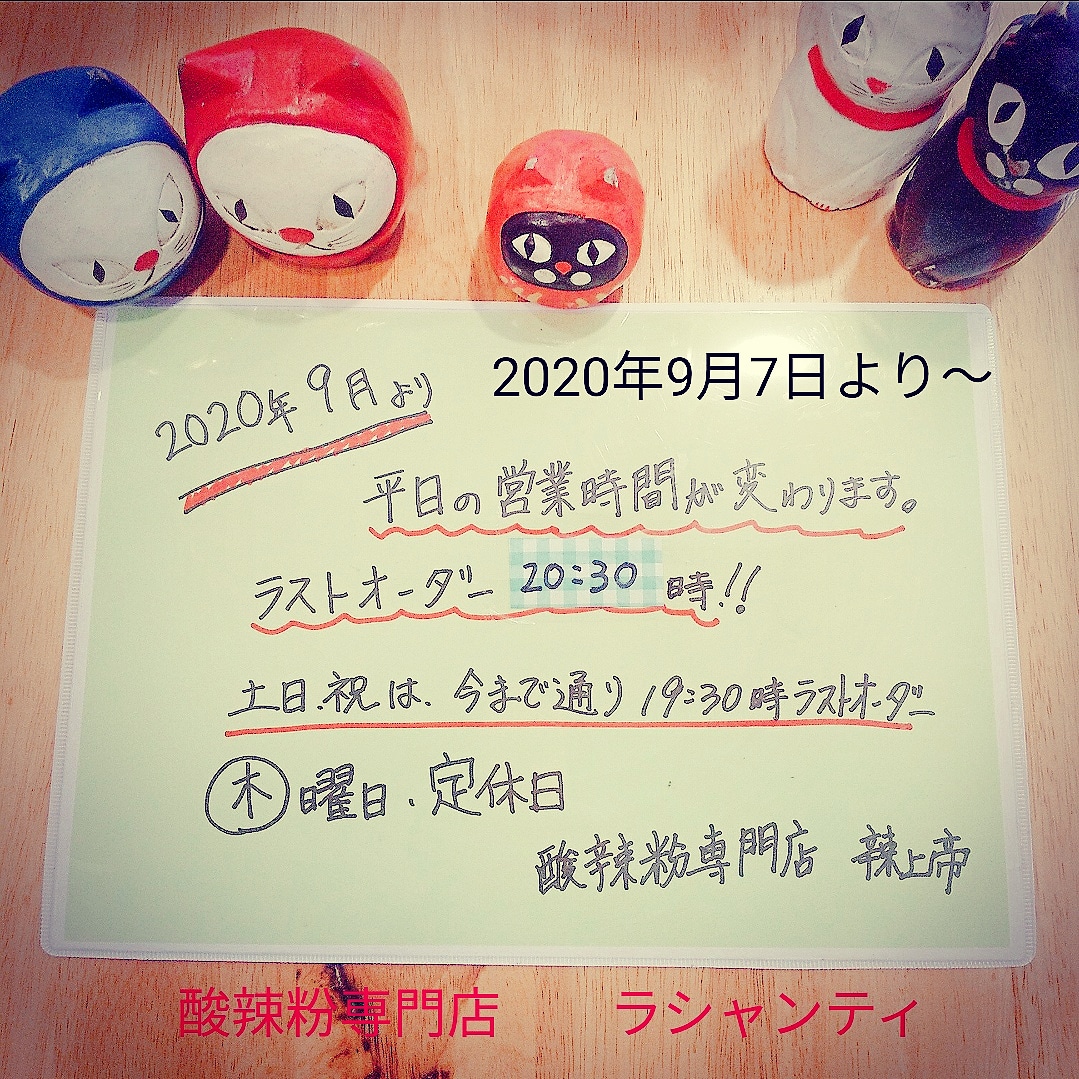 2020年9月7日より～
2020年9月より
平日の営業時間が変わります。
ラストオーダー 20:30 時!!
土日.祝は、今まで通り19:30時ラストオーダー
木曜日.定休日
酸辣粉専門店 辣上帝
酸辣粉専門店 ラシャンティ